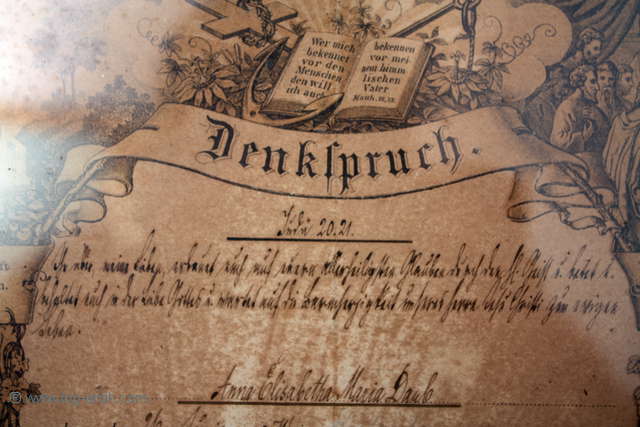 Wer mich
bekennet
vor den
Menschen
den will
ich auch
bekennen
vor mei
nem himm
lischen
Vater
Denkſpruch.
Judä 20.21.
Ihr aber, meine Lieben, erbauet euch auf euren allerheiligsten Glauben durch den hl. Geist u. betet u.
behaltet euch in der Liebe Gottes u. wartet auf die Barmherzigkeit unseres Herrn Jesu Christi zum ewigen
Leben.
Anna Elisabetha Maria Daub